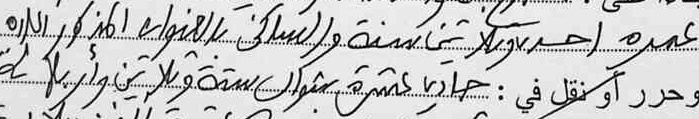 عمره احد وثلاثين سنة والساكن بالعنوان المذكور اعلاه
وحرر أو نقل في : حادي عشرة شوال ستة وثلاثين وأربع